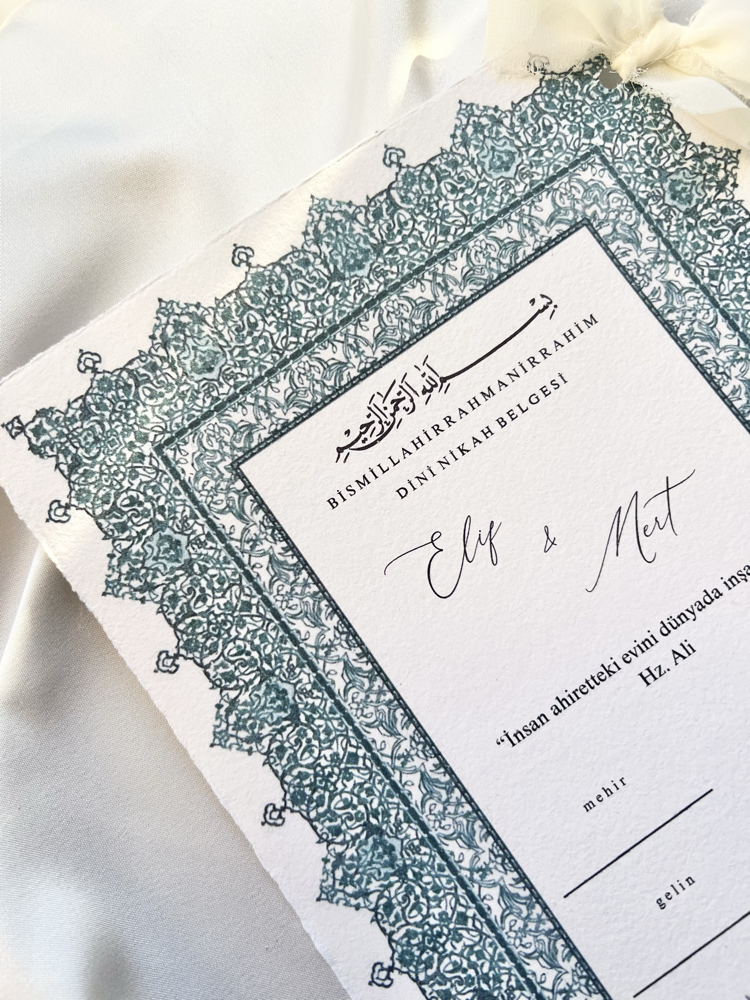 بسم الله الرحمن الرحيم
BİSMİLLAHİRRAHMANİRRAHİM
DİNİ NİKAH BELGESİ
Elif & Mert
“İnsan ahiretteki evini dünyada inşa
Hz. Ali
mehir
gelin